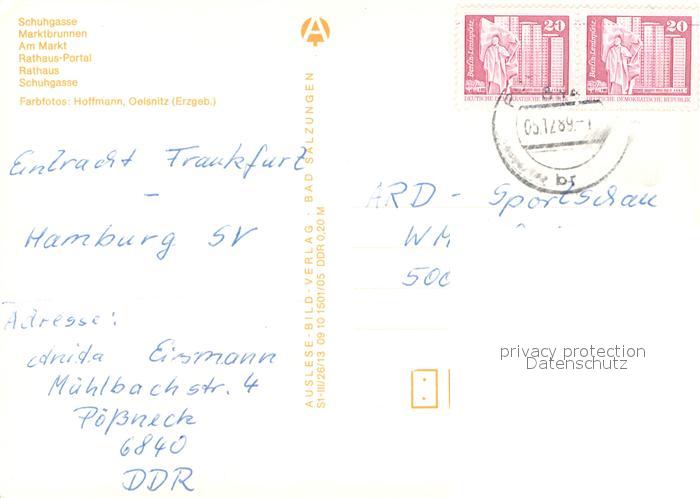 Schuhgasse
Marktbrunnen
Am Markt
Rathaus-Portal
Rathaus
Schuhgasse
Farbfotos: Hoffmann, Oelsnitz (Erzgeb.)
Eintracht Frankfurt
-
Hamburg SV
Adresse:
Anita Eismann
Mühlbachstr. 4
Pößneck
6840
DDR
AUSLESE-BILD-VERLAG · BAD SALZUNGEN
S1-III/26/13 09 10 1501/05 DDR 0,20 M
Berlin-Leninplatz 20
DEUTSCHE DEMOKRATISCHE REPUBLIK
Berlin-Leninplatz 20
DEUTSCHE DEMOKRATISCHE REPUBLIK
05.12.89.-1
br
ARD - Sportschau
WM
500
privacy protection
Datenschutz